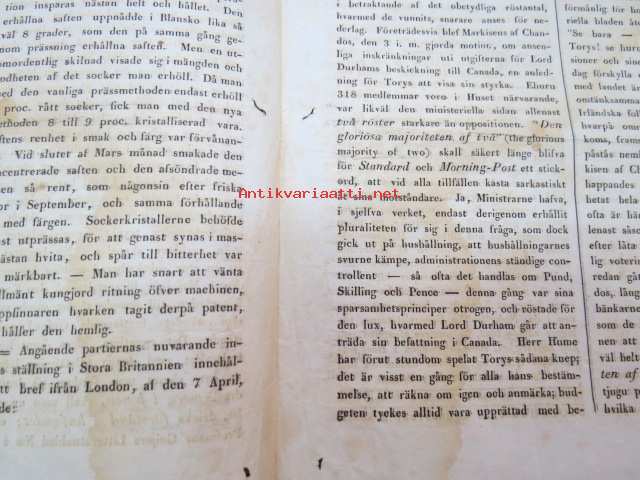 tion inspäras nästan helt och hållet. Den
erhållna saften uppnådde i Blansko lika så
väl 8 grader, som den på samma gång ge-
nom prässning erhållna saften. Men en ut-
omordentlig skilnad visade sig i mängden och
odheten af det socker man erhöll. Då man
ed den vanliga prässmethoden endast erhöll
proc. rått socker, fick man med den nya
ethoden 8 till 9 proc. kristalliserad vara.
ftens renhet i smak och färg var förvånan-
Vid slutet af Mars månad smakade den
ncentrerade saften och den afsöndrade me-
en så rent, som någonsin efter friska
or i September, och samma förhållande
med färgen. Sockerkristallerne behöfde
st utprässas, för att genast synas i mas-
ästan hvita, och spår till bitterhet var
märkbart. — Man har snart att vänta
llmänt kungjord ritning öfver machinen,
ppfinnaren hvarken tagit derpå patent,
håller den hemlig.
= Angående partiernas nuvarande in-
s ställning i Stora Britannien innehål-
tt bref ifrån London, af den 7 April,
de:
i betraktande af det obetydliga röstantal,
hvarmed de vunnits, snarare anses för ne-
derlag. Företrädesvis blef Markisens af Chan-
dos, den 3 i. m. gjorda motion, om ansen-
liga inskränkningar uti utgifterna för Lord
Durhams beskickning till Canada, en anled-
ning för Torys att visa sin styrka. Ehuru
318 medlemmar voro i Huset närvarande,
var likväl den ministeriella sidan allenast
två röster starkare än oppositionen. "Den
gloriösa majoriteten af två" (the glorious
majority of two) skall säkert länge blifva
för Standard och Morning-Post ett stick-
ord, att vid alla tillfällen kasta sarkastiskt
åt sina motståndare. Ja, Ministrarne hafva,
i sjelfva verket, endast derigenom erhållit
pluraliteten för sig i denna fråga, som dock
gick ut på hushållning, att hushållningarnes
svurne kämpe, administrationens ständige con-
trollent — så ofta det handlas om Pund,
Skilling och Pence — denna gång var sina
sparsamhetsprinciper otrogen, och röstade för
den lux, hvarmed Lord Durham går att an-
träda sin befattning i Canada. Herr Hume
har förut stundom spelat Torys sådana knep;
det är visst en gång för alla hans bestäm-
melse, att räkna om igen och anmärka; bud-
geten tyckes alltid vara upprättad med be-
förmånlig för ho
riella bladen åt
"Se bara —
Torys! se hur
sioner och sina
dag förskylla
med landet är
omtänksamma
Irländska fol
hvarpå omt
koms, framst
påstås neml
kisen af Ch
happandes
tet hela
ofta är h
sast sökt
efter låta
lig voteri
redan gåt
dos, lång
bundet d
kan med
en af må
väl helt
ten af
tjugu p
hvilka
Antikvariaatti.net